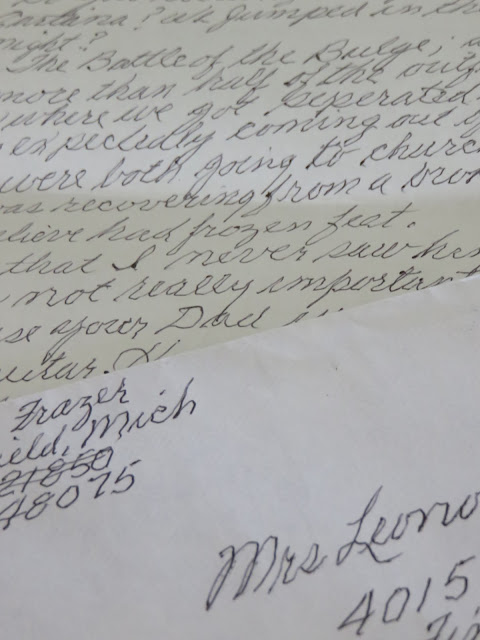 Carolina? or jumped in th
night?
The Battle of the Bulge,
more than half of the
where we got seperated
expectedly coming out of
were both going to churc
was recovering from a bro
elieve had frozen feet.
that I never saw him
not really important
use your Dad
uitar.
Frazer
ield, Mich
21850
48075
Mrs Leono
4015